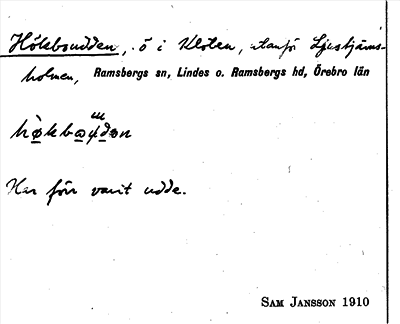 Hökbsudden, ö i Kloten, utanför Ljustjärns-
holmen, Ramsbergs sn, Lindes o. Ramsbergs hd, Örebro län
Har förr varit udde.
SAM JANSSON 1910